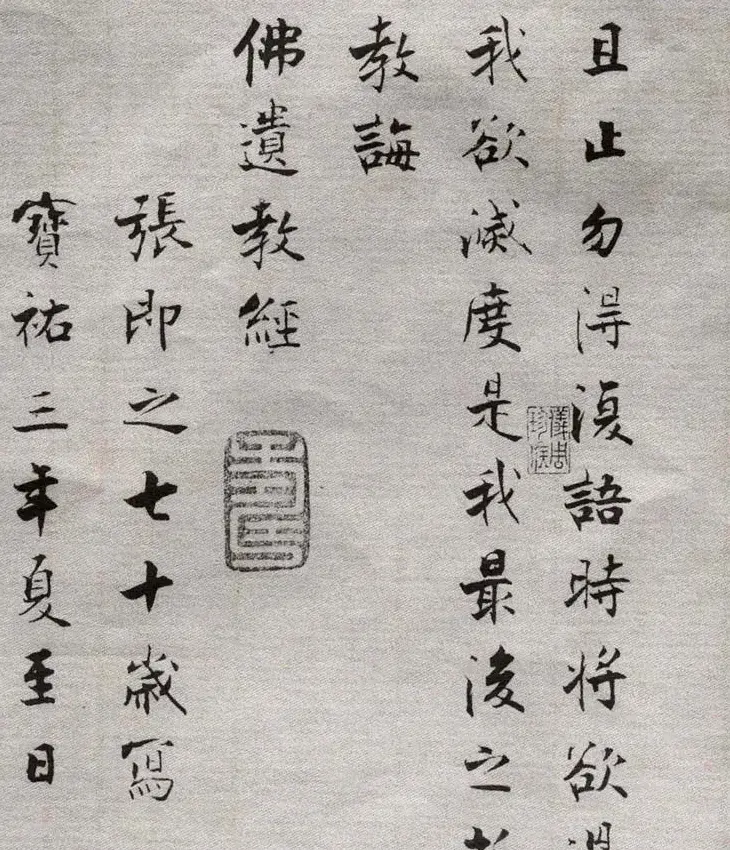 且止勿得復語時將欲
我欲滅度是我最後之
教誨
佛遺教經
張即之七十歲寫
寶祐三年夏至日
儀周珍藏